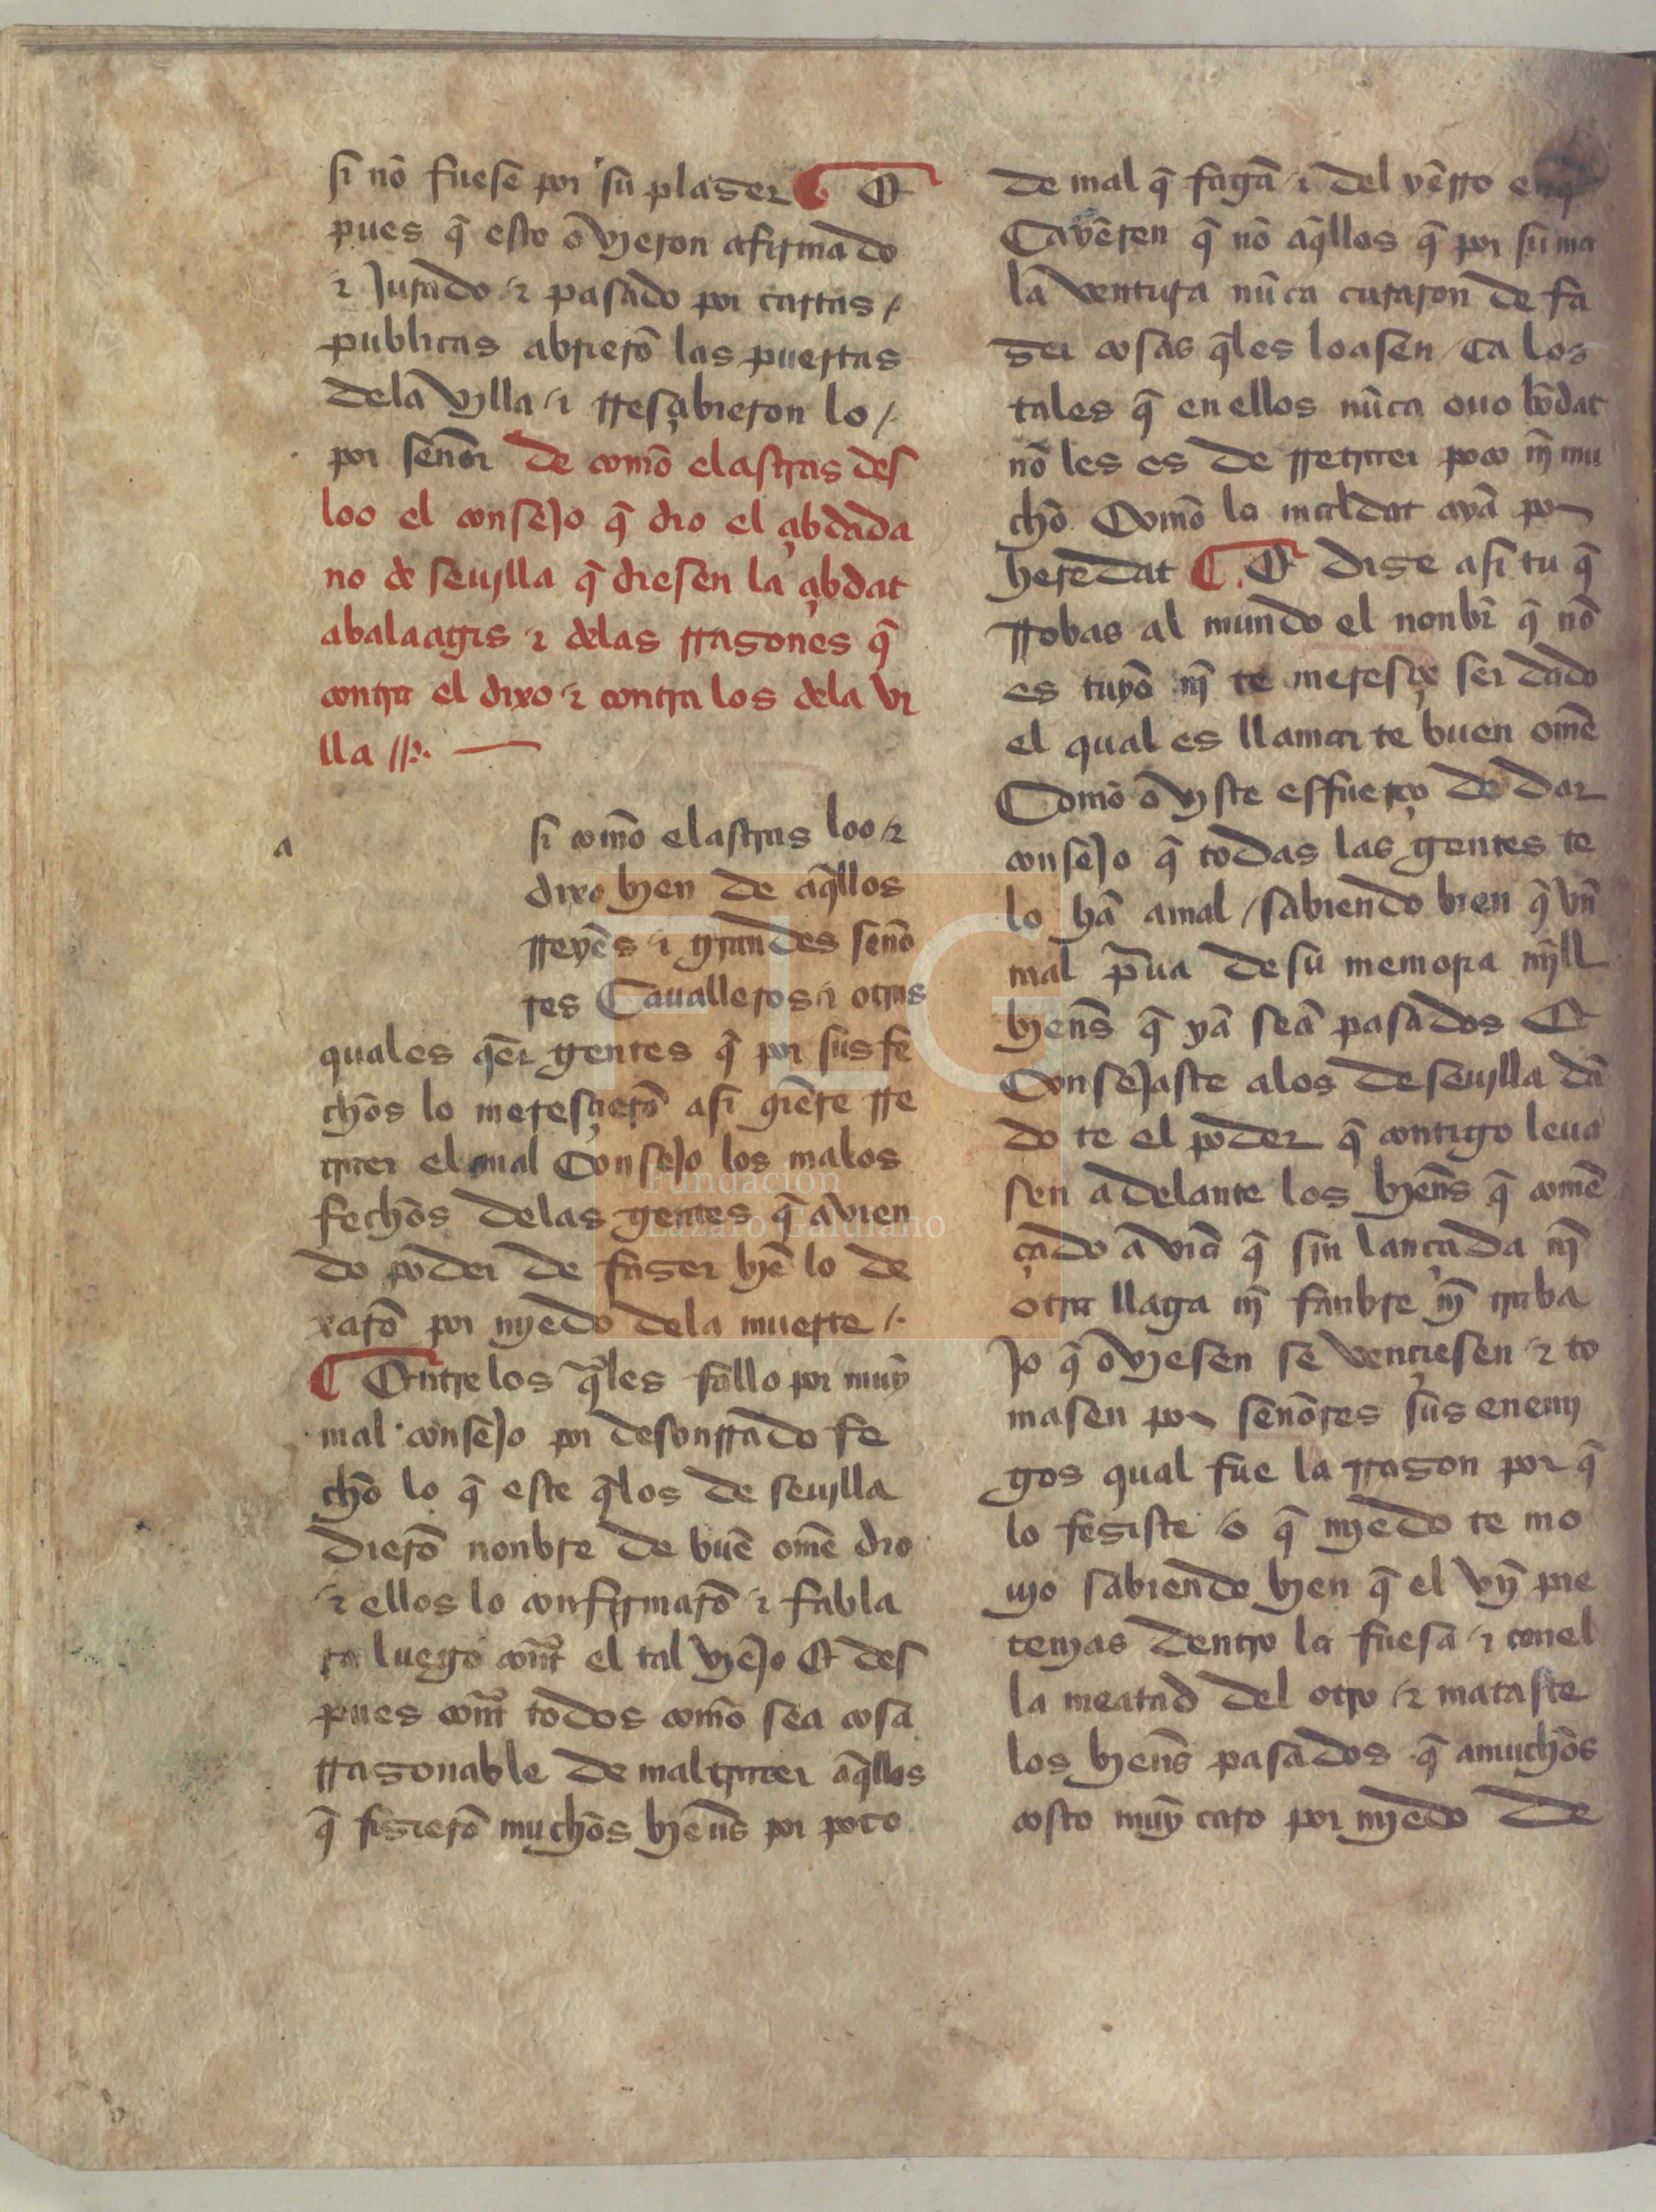 si nō fuese por su plazer ¶ Et
pues q̄ esto ōvieron afirmado
⁊ Jurado ⁊ pasado por cartas /
publicas abrierō las puertas
dela villa ⁊ rresçibieron lo /.
por señor de comō elastras des
loo el consejo q̄ dio el çibdada
no de seuilla q̄ diesen la çibdat
abalaagis ⁊ delas rrazones q̄
contra el dixo ⁊ contra los dela vi
lla //.
a
si comō elastras loo ⁊
dixo bien de aq̄llos
rreyēs ⁊ grandes señō
res Caualleros ⁊ otras
quales q̄er gentes q̄ por sus fe
chōs lo meresçierō asi q̄iere rre
traer el mal Consejo los malos
fechōs delas gentes q̄ avien
do poder de fazer biē lo de
xarō por miedo dela muerte /.
¶ Entre los q̄les fallo por muy
mal consejo por desonrrado fe
chō lo q̄ este q̄ los de seuilla
dierō nonbre de buē omē dio
⁊ ellos lo confirmarō ⁊ fabla
ra luego cont̄ el tal viejo Et des
pues cont̄ todos comō sea cosa
rrazonable de maltraer aq̄llos
q̄ fizierō muchōs biēns por poco
de mal q̄ fagā ⁊ del yērro
Cayēren q̄ nō aq̄llos q̄ por su ma
la ventura nūca curaron de fa
zer cosas q̄les loasen / ca los
tales q̄ en ellos nūca ouo bōdat
nō les es de rretraer poco nī mu
chō Comō la maldat ayā por
heredat ¶ Et dize asi tu q̄
rrobas al mundo el nonbr̄ q̄ nō
es tuyō nī te meresçe ser dado
el qual es llamar te buen omē
Comō ōviste esfuerço de dar
consejo q̄ todas las gentes te
lo hā amal / sabiendo bien q̄ vn̄
mal p̄ua de su memoria mill
biēns q̄ yā seā pasados Et
Consejaste alos de seuilla dā
do te el poder q̄ contigo leua
sen adelante los biēns q̄ comē
çado aviā q̄ sin lançada nī
otra llaga nī fanbre nī traba
Jo q̄ ōviesen se vençiesen ⁊ to
masen por señōres sus enemi
gos qual fue la rrazon por q̄
lo feziste o q̄ miedo te mo
uio sabiendo bien q̄ el vn̄ pie
tenias dentro la fuesa ⁊ conel
la meatad del otro ⁊ mataste
los biēns pasados q̄ amuchōs
costo muȳ caro por miedo de
Fundación
Lázaro Galdiano
FLG